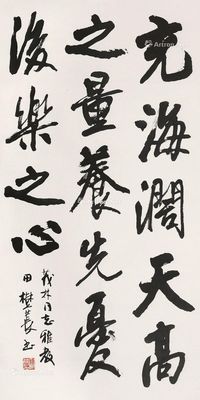 充海濶天高
之量養先憂
後樂之心
義林同志雅教
田樹萇书
Artron